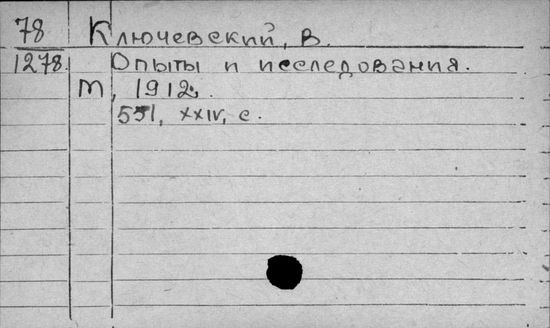 78 Ключевский, В.
1278. Опыты и исследования.
М, 1912.
551, XXIV, с.